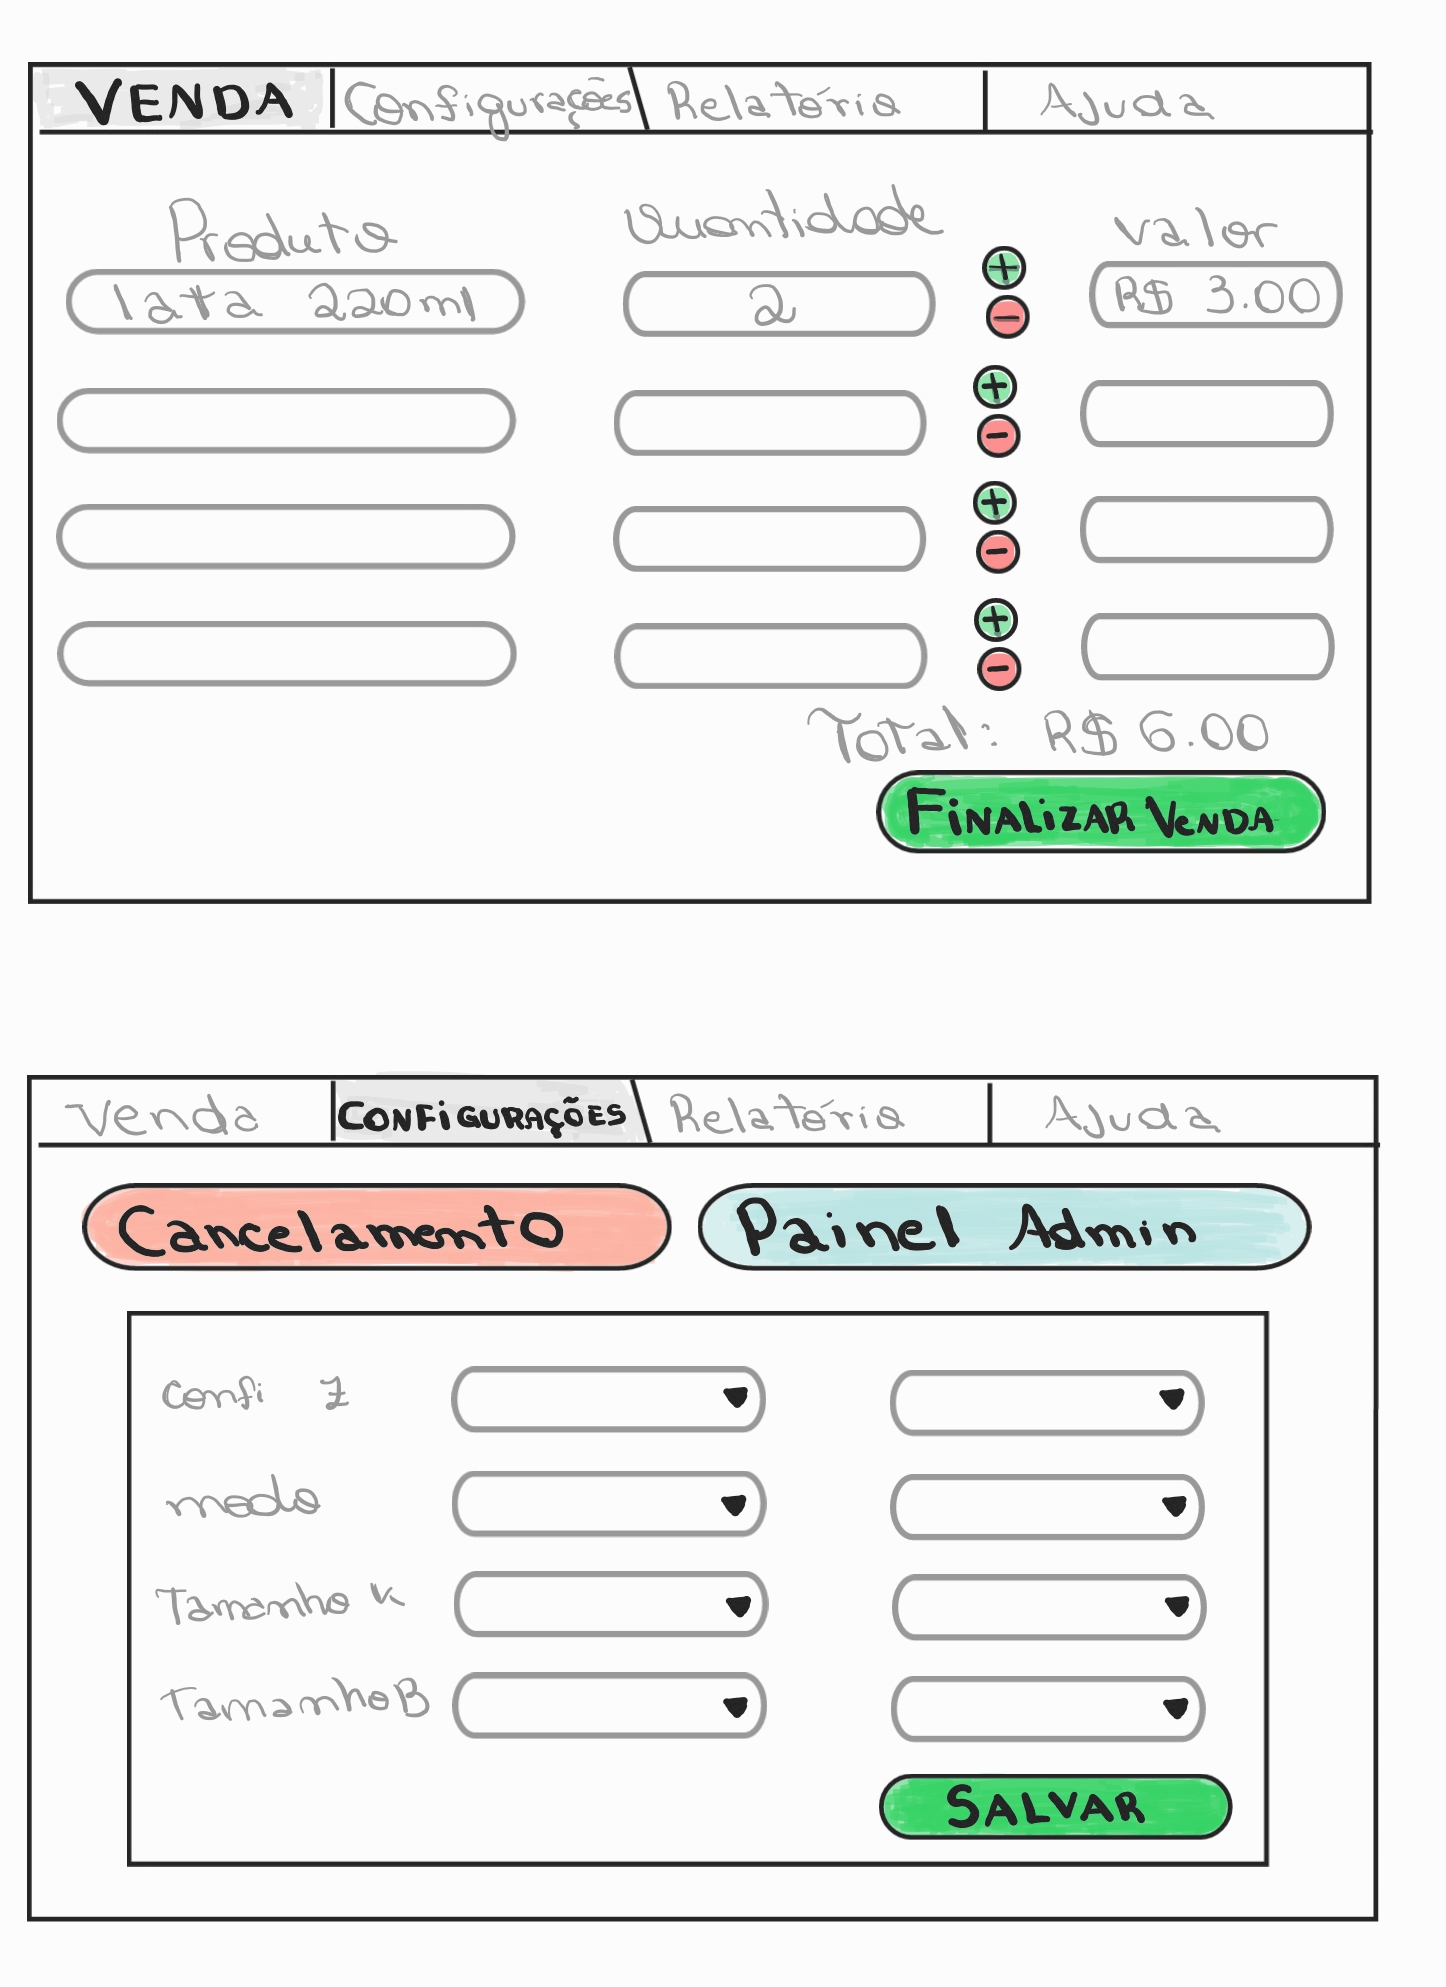 VENDA Configurações Relatório Ajuda
Produto Quantidade Valor
lata 220ml 2 + R$ 3.00
-
+
-
+
-
+
-
Total: R$ 6.00
FINALIZAR VENDA
Venda CONFIGURAÇÕES Relatório Ajuda
Cancelamento Painel Admin
Confi
modo
Tamanho
Tamanho B
SALVAR